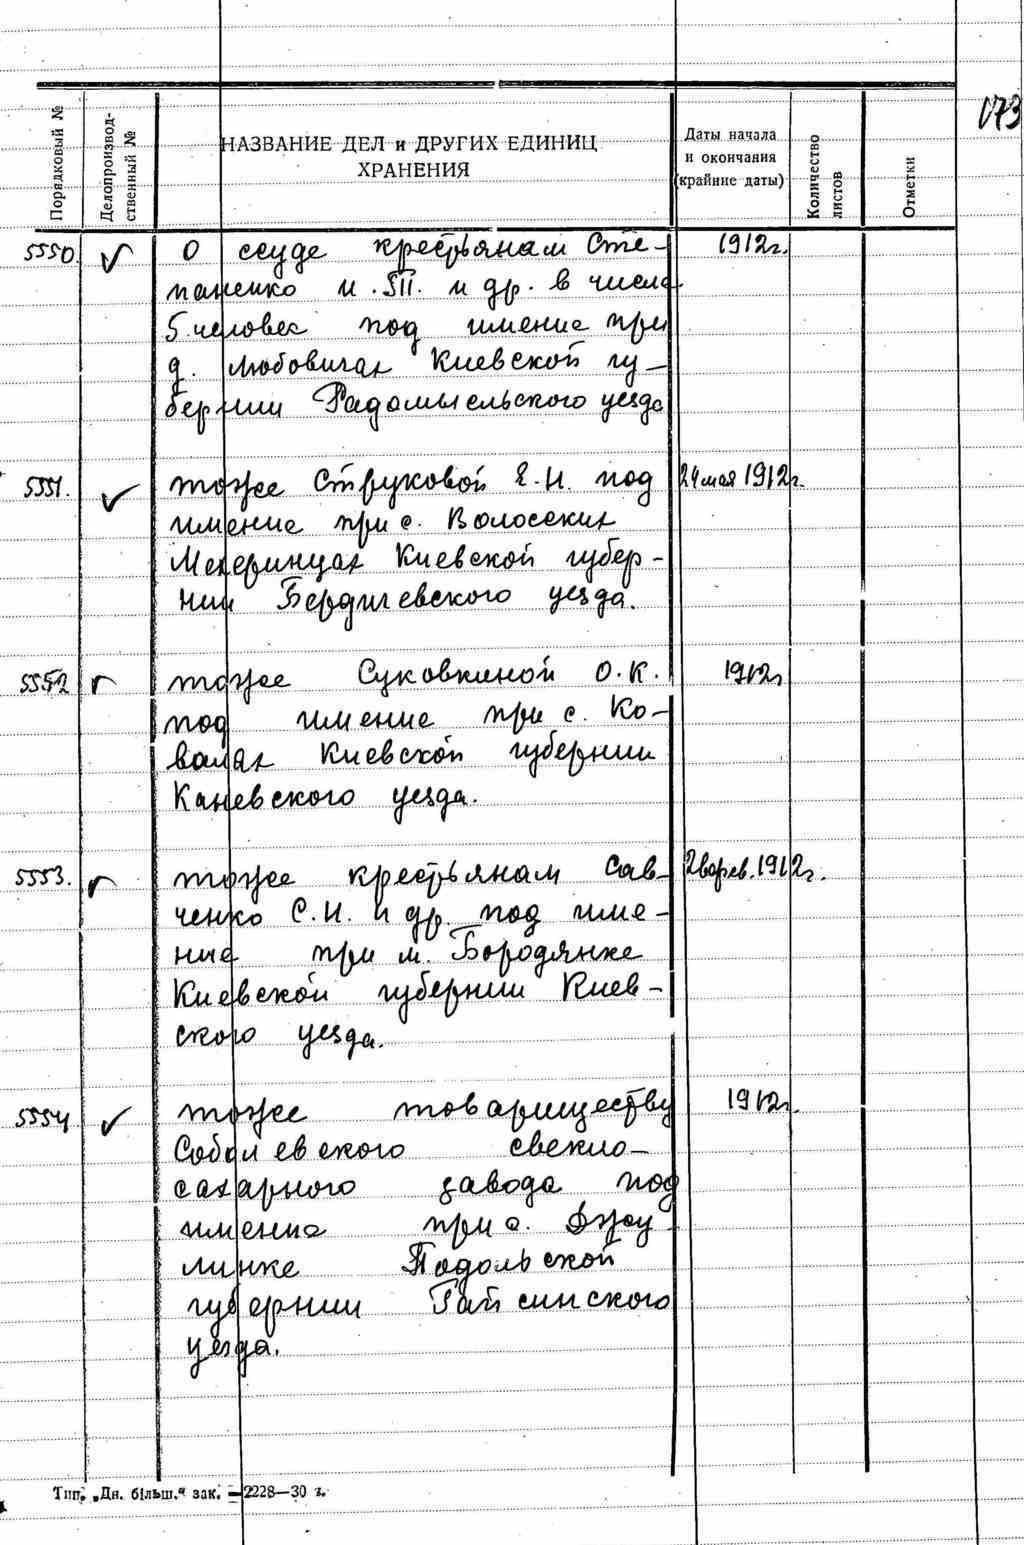 173
Порядковый №
Делопроизвод-
ственный №
НАЗВАНИЕ ДЕЛ и ДРУГИХ ЕДИНИЦ
ХРАНЕНИЯ
Даты начала
и окончания
(крайние даты)
Количество
листов
Отметки
5550. О ссуде крестьянам Сте- 1912г.
паненко и др. в числе
5 человек под имение при
д. Любовичах Киевской гу-
бернии Радомысльского уезда
5551. тоже Струковой Е.Н. под 24 мая 1912г.
имение при с. Волосских
Мехеринцах Киевской губер-
нии Бердичевского уезда.
5552 тоже Суковкиной О.К. 1912г
под имение при с. Ко-
валях Киевской губернии
Каневского уезда.
5553. тоже крестьянам Сав- 1912г.
ченко С.И. и др. под име-
ние при м. Бородянке
Киевской губернии Киев-
ского уезда.
5554 тоже товариществу 1912г.
Соболевского свекло-
сахарного завода под
имение при с. Джу
линке Подольской
губернии Гайсинского
уезда.
Тип. „Дн. більш.“ зак. —2228—30 г.